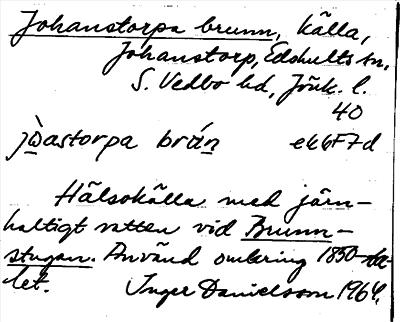 Johanstorpa brunn, källa,
Johanstorp, Edshults sn,
S. Vedbo hd, Jönk. l.
40
jo̱̍astorpa brán e66F7d
Hälsokälla med järn-
haltigt vatten vid Brunn-
stugan. Använd omkring 1850-ta-
let. Inger Danielsson 1964.